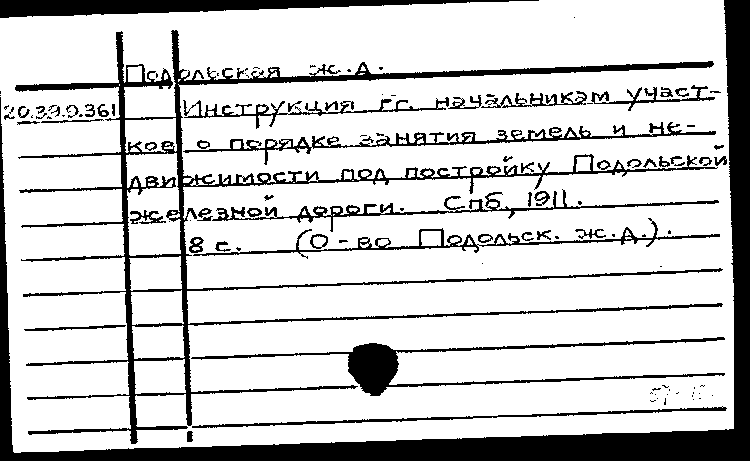 Подольская ж.д.
20.39.9.361 Инструкция гг. начальникам участ-
ков о порядке занятия земель и не-
движимости под постройку Подольской
железной дороги. Спб., 1911.
8 с. (О-во Подольск. ж.д.).